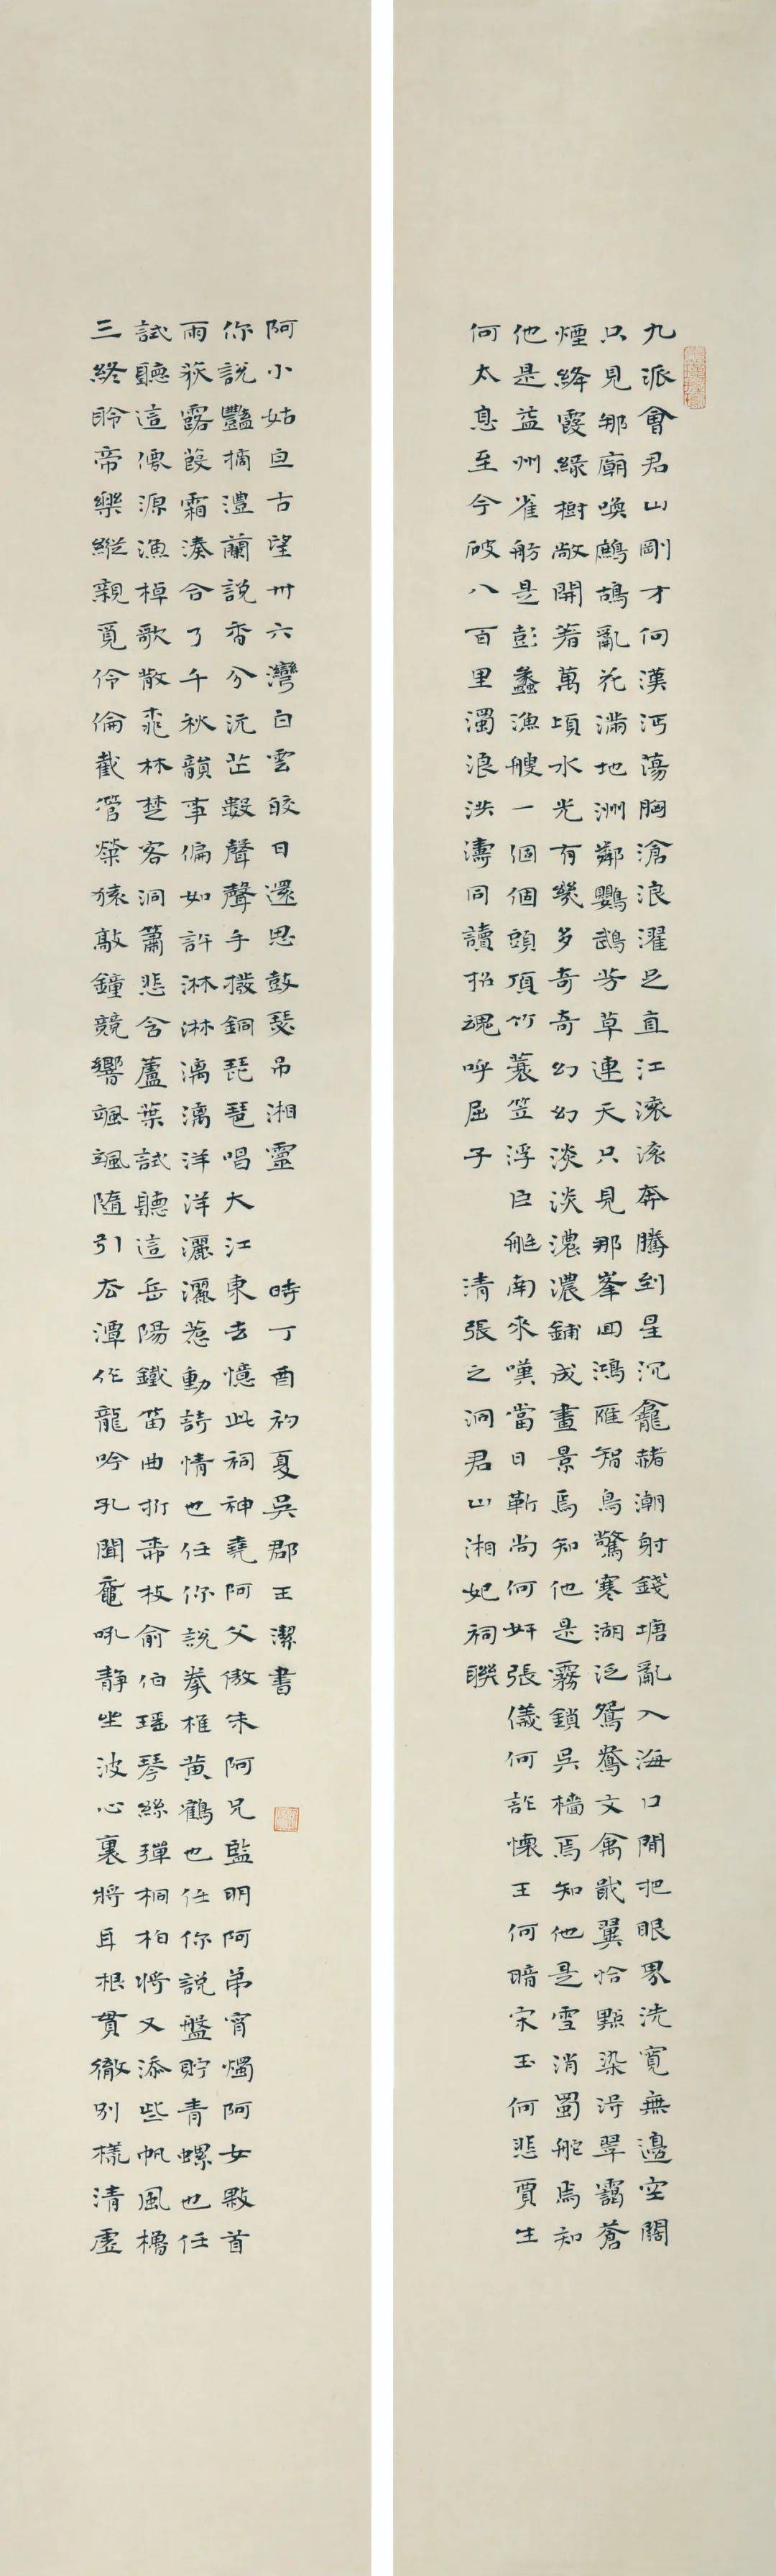 九派會君山剛才向漢沔蕩胸滄浪濯足直江滾滾奔騰到星沉龕赭潮射錢塘亂入海口閒把眼界洗寬無邊空闊
只見那廟喚鷓鴣亂花滿地洲鄰鸚鵡芳草連天只見那峯回鴻雁智鳥驚寒湖泛鴛鴦文禽戢翼恰點染得翠靄蒼
煙絳霞綠樹敞開着萬頃水光有幾多奇奇幻幻淡淡濃濃鋪成畫景焉知他是霧鎖吳檣焉知他是雪消蜀舵焉知
他是益州雀舫是彭蠡漁艘一個個頭頂竹蓑笠浮巨艇南來嘆當日靳尚何奸張儀何詐懷王何暗宋玉何悲賈生
何太息至今破八百里濁浪洪濤同讀招魂呼屈子
清張之洞君山湘妃祠聯
三終聆帝樂縱親覓伶倫截管榮猿敲鐘競響颯颯隨引去潭作龍吟孔聞鼉吼靜坐波心裏將耳根貫徹別樣清虛
試聽這僊源漁棹歌散桃林楚客洞簫悲含蘆葉試聽這岳陽鐵笛曲折柳枝俞伯瑤琴絲彈桐柏將又添些帆風櫓
雨荻露葭霜湊合了千秋韻事偏如許淋淋漓漓洋洋灑灑惹動詩情也任你說拳椎黃鶴也任你說盤貯青螺也任
你說豔摘澧蘭說香分沅芷數聲聲手撥銅琵琶唱大江東去憶此祠神堯阿父傲朱阿兄監明阿弟宵燭阿女敤首
阿小姑亘古望卅六灣白雲皎日還思鼓瑟吊湘靈
時丁酉初夏吳郡王潔書